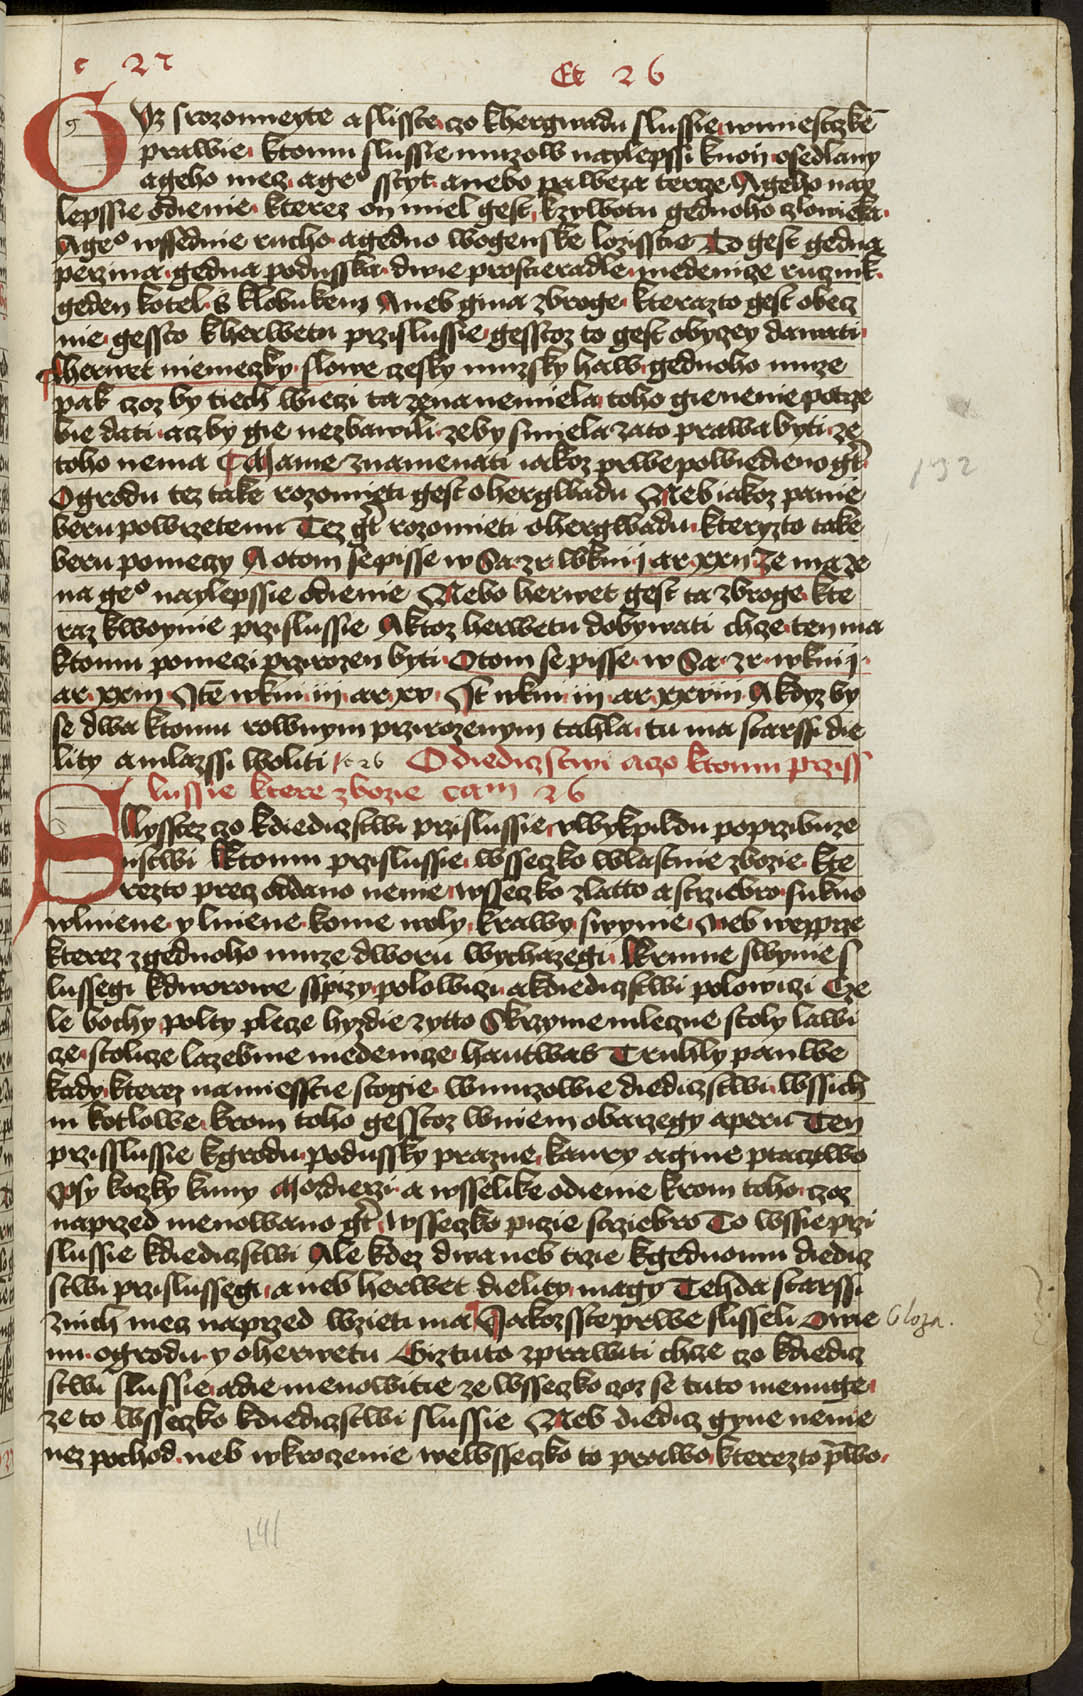 c 25
Et 26
GYz srozomneyte a slisste czo khergwadu slussie wmiestczke
prawie ktomu slussie muzow naylepssi kuon osedlany
a geho mecz a geo sstyt anebo paweza tercze A geho nay
lepssie odienie kterez on miel gest kzywotu gednoho czlowieka
A geo wssednie rucho a gedno wogenske lozisstie To gest gedna
perzina gedna podusska dwie prostieradle medenicze rucznik
geden kotel s klobukem Aneb gina zbroge kterazto gest obecz
nie gessto kherwetu przislussie gesstoz to gest obyczey dawati
Cherwet niemeczky slowe czesky muzsky haw gednoho muze
pak czoz by tiech wieczi ta zena nemiela toho gie nenie potrze
bie dati acz by gie nezbawili ze by smiela za to prawa byti ze
toho nema Mame znamenati iakoz prwe powiedieno gt
Ogrodu tez take rozomieti gest o hergwadu Neb iakoz panie
beru powrzetenu Tez gt rozomieti o hergwadu kteryzto take
beru pomeczy A otom se pisse w Sa zr wkni j ar xxij Ze ma ze
na geo naylepssie odienie Nebo herwet gest ta zbroge kte
raz kwoynie przislussie A ktoz herwetu dobywati chcze ten ma
ktomu pomeczi przirozen byti Otom se pisse w Sa zr wkni j
ar xxiij Ite wkni iij ar xv It wkni iij ar xxviij A kdyz by
se dwa ktomu rownym przirozenym tahla tu ma starssi die
lity a mlazssi woliti c 26 O diediczstwi a czo ktomu przis
lussie ktere zbozie cam 26
Slysstez czo kdiediczstwi przislussie y wykpildu po przibuze
nstwi Ktomu przislussie wsseczko wlastnie zbozie kte
rezto precz oddano nenie wsseczko zlatto a strziebro sukno
wlniene y lniene konie woly krawy swynie neb weprze
kterez z gednoho muze dworu wychazegi Krmne swynie s
lussegi kdworowe sspizy polowiczi a kdiediczstwi polowiczi Cze
le bochy polty plecze hyzdie zytto Skrzynie mleczne stoly lawi
cze stolicze lazebnie medenicze hantwas Truhly panwe
kady kterez na miesstie stogie wmuzowie diediczstwi wssich
ni kotlowe krom toho gesstoz wniem obarzegy a peru Ten
przisslussie kgrodu podussky prazne kaury a gine ptacztwo
Psy koczky kuny Mozdierzi a wsselike odienie krom toho czoz
naprzed menowano gt wsseczko picie strziebro To wssie przi
slussie kdiediczstwi Ale kdez dwa neb trzie kgednomu diedicz
stwi przislussegi aneb herwet dielity magy Tehda starssi
znich mecz naprzed wzieti ma Jakozsste prwe slisseli Owie
Gloza.
nu ogrodu y o herwetu Giz tuto zprawiti chcze czo kdiedicz
stwi slussie a die menowitie ze wsseczko czoz se tuto menuge
ze to wsseczko kdiediczstwi slussie Neb diedicz gyne nenie
nez pochod neb wkroczenie we wsseczko to prawo kterezto pwo
132
141